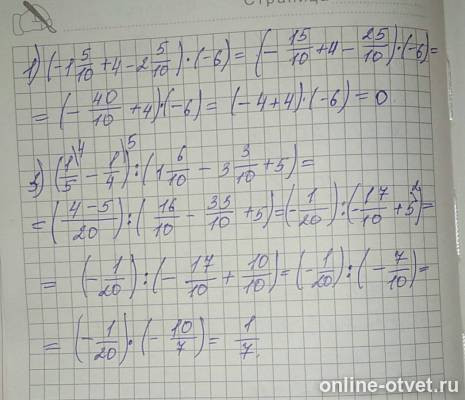 Страница
1) (-1 5/10 + 4 - 2 5/10) · (-6) = (- 15/10 + 4 - 25/10) · (-6) =
= (- 40/10 + 4) · (-6) = (-4+4) · (-6) = 0.
3) (1/5 \4 - 1/4 \5) : (1 6/10 - 3 3/10 + 5) =
= ((4-5)/20) : (16/10 - 33/10 + 5) = (- 1/20) : (- 17/10 + 5) =
= (- 1/20) : (- 17/10 + 10/10) = (- 1/20) : (- 7/10) =
= (- 1/20) · (- 10/7) = 1/7.
online-otvet.ru